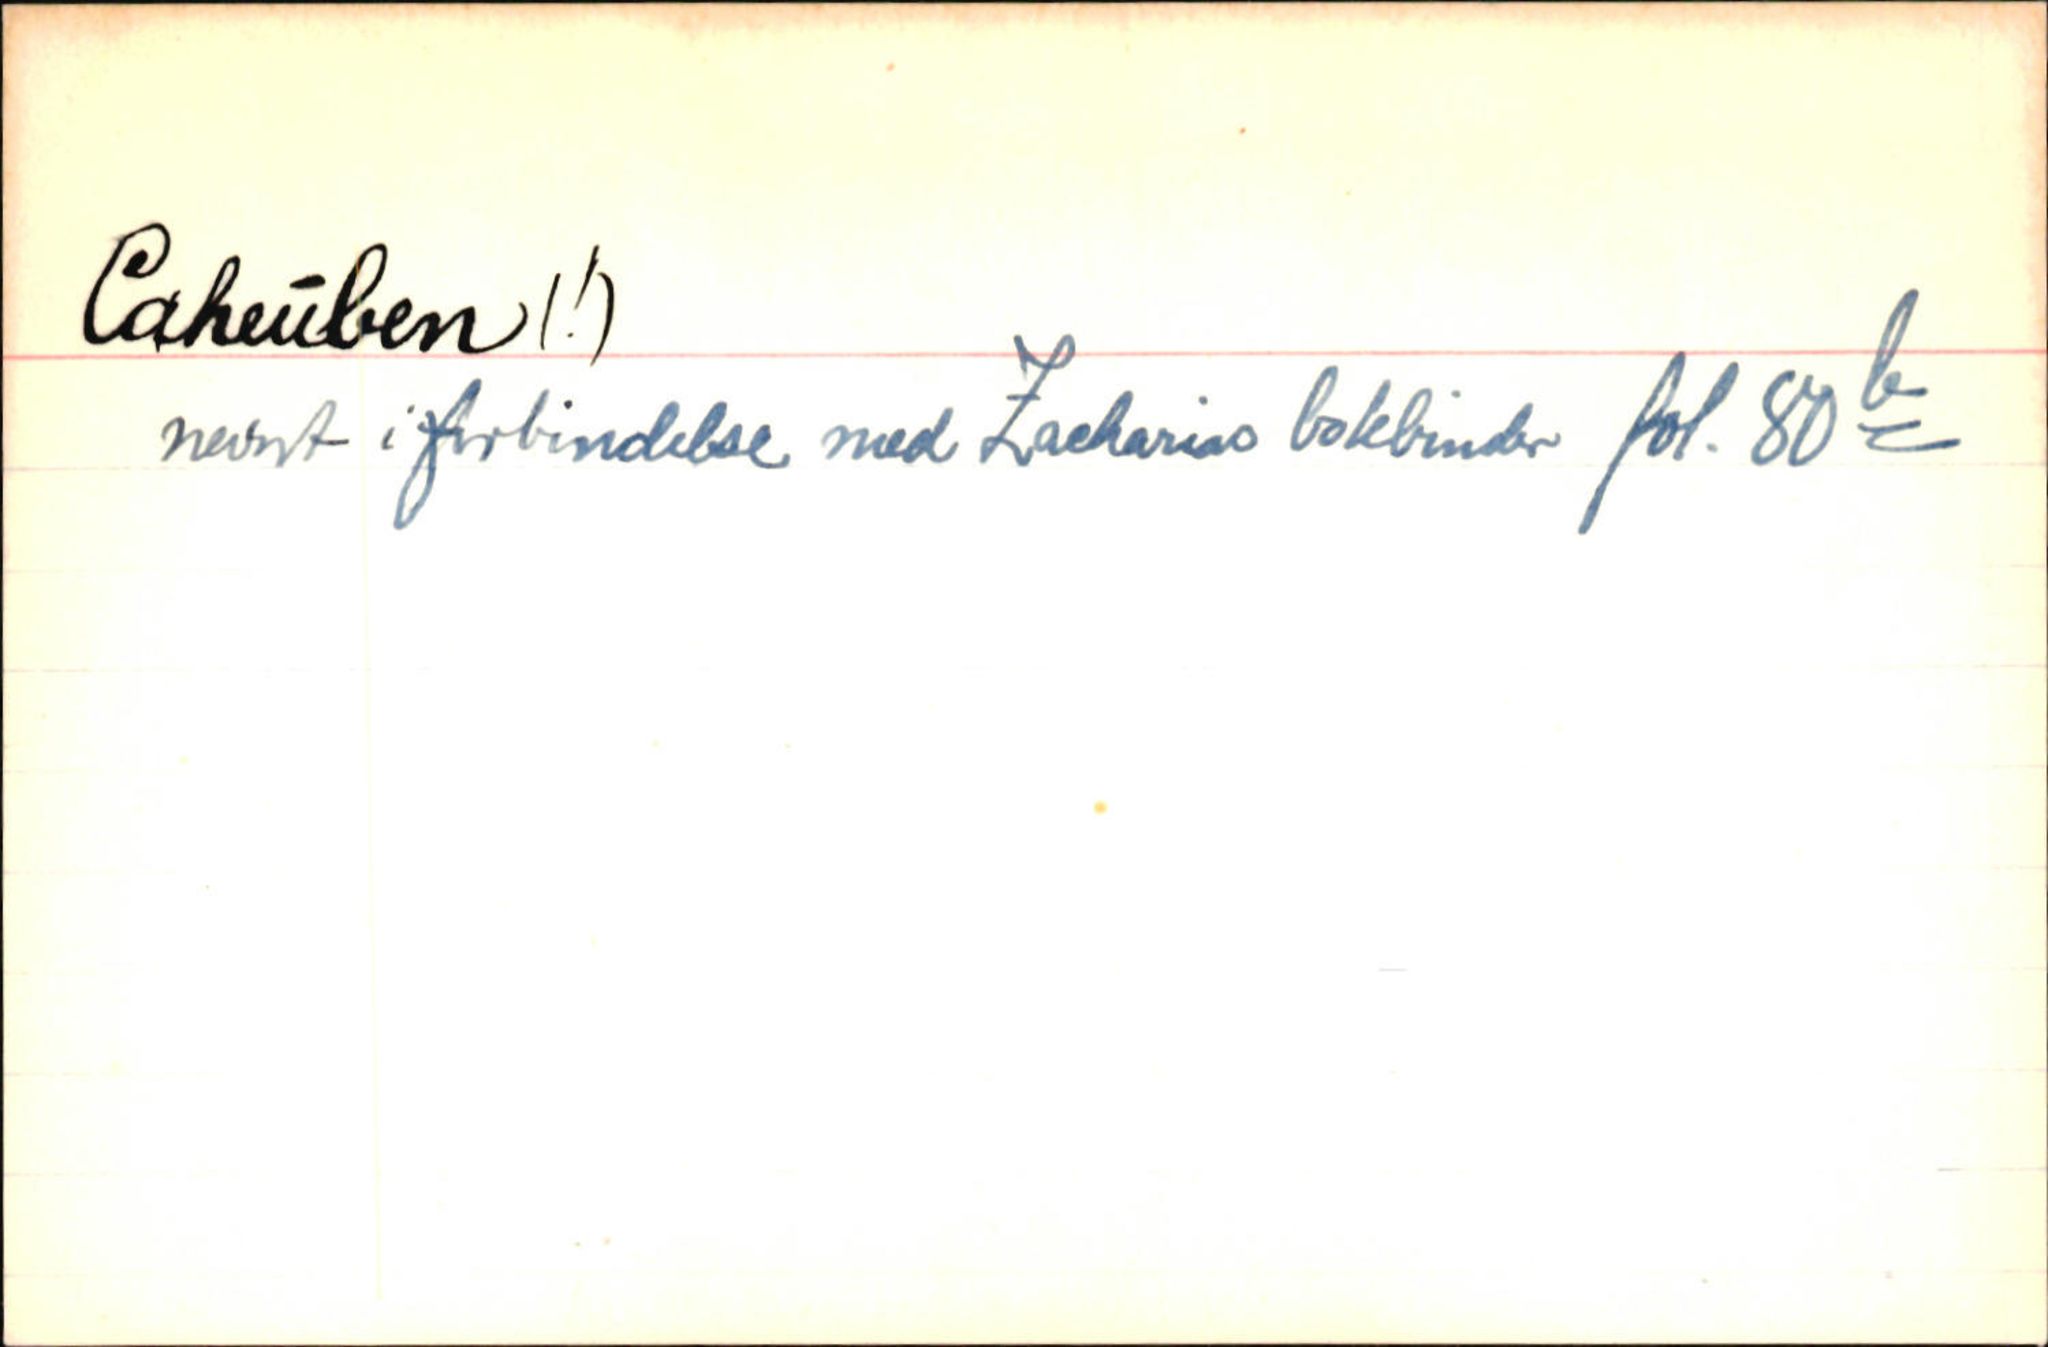 Caheüben (!)
nevnt i forbindelse med Zacharias bokbinder fol. 80 b